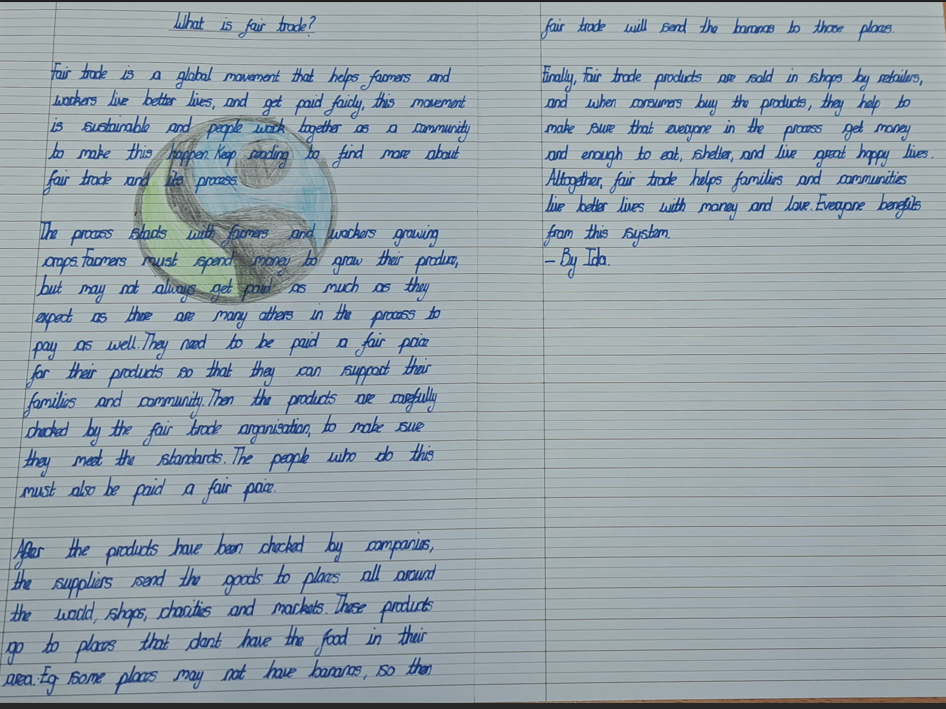 What is fair trade?
Fair trade is a global movement that helps farmers and
workers live better lives, and get paid fairly, this movement
is sustainable and people work together as a community
to make this happen. Keep reading to find more about
fair trade and its process.
The process starts with farmers and workers growing
crops. Farmers must spend money to grow their produce,
but may not always get paid as much as they
expect as there are many others in the process to
pay as well. They need to be paid a fair price
for their products so that they can support their
families and community. Then the products are carefully
checked by the fair trade organisation, to make sure
they meet the standards. The people who do this
must also be paid a fair price.
After the products have been checked by companies,
the suppliers send the goods to places all around
the world, shops, charities and markets. These products
go to places that dont have the food in their
area. Eg some places may not have bananas, so then
fair trade will send the bananas to those places.
Finally, Fair trade products are sold in shops by retailers,
and when consumers buy the products, they help to
make sure that everyone in the process get money
and enough to eat, shelter, and live great happy lives.
Altogether, fair trade helps families and communities
live better lives with money and love. Everyone benefits
from this system.
- By Ida.